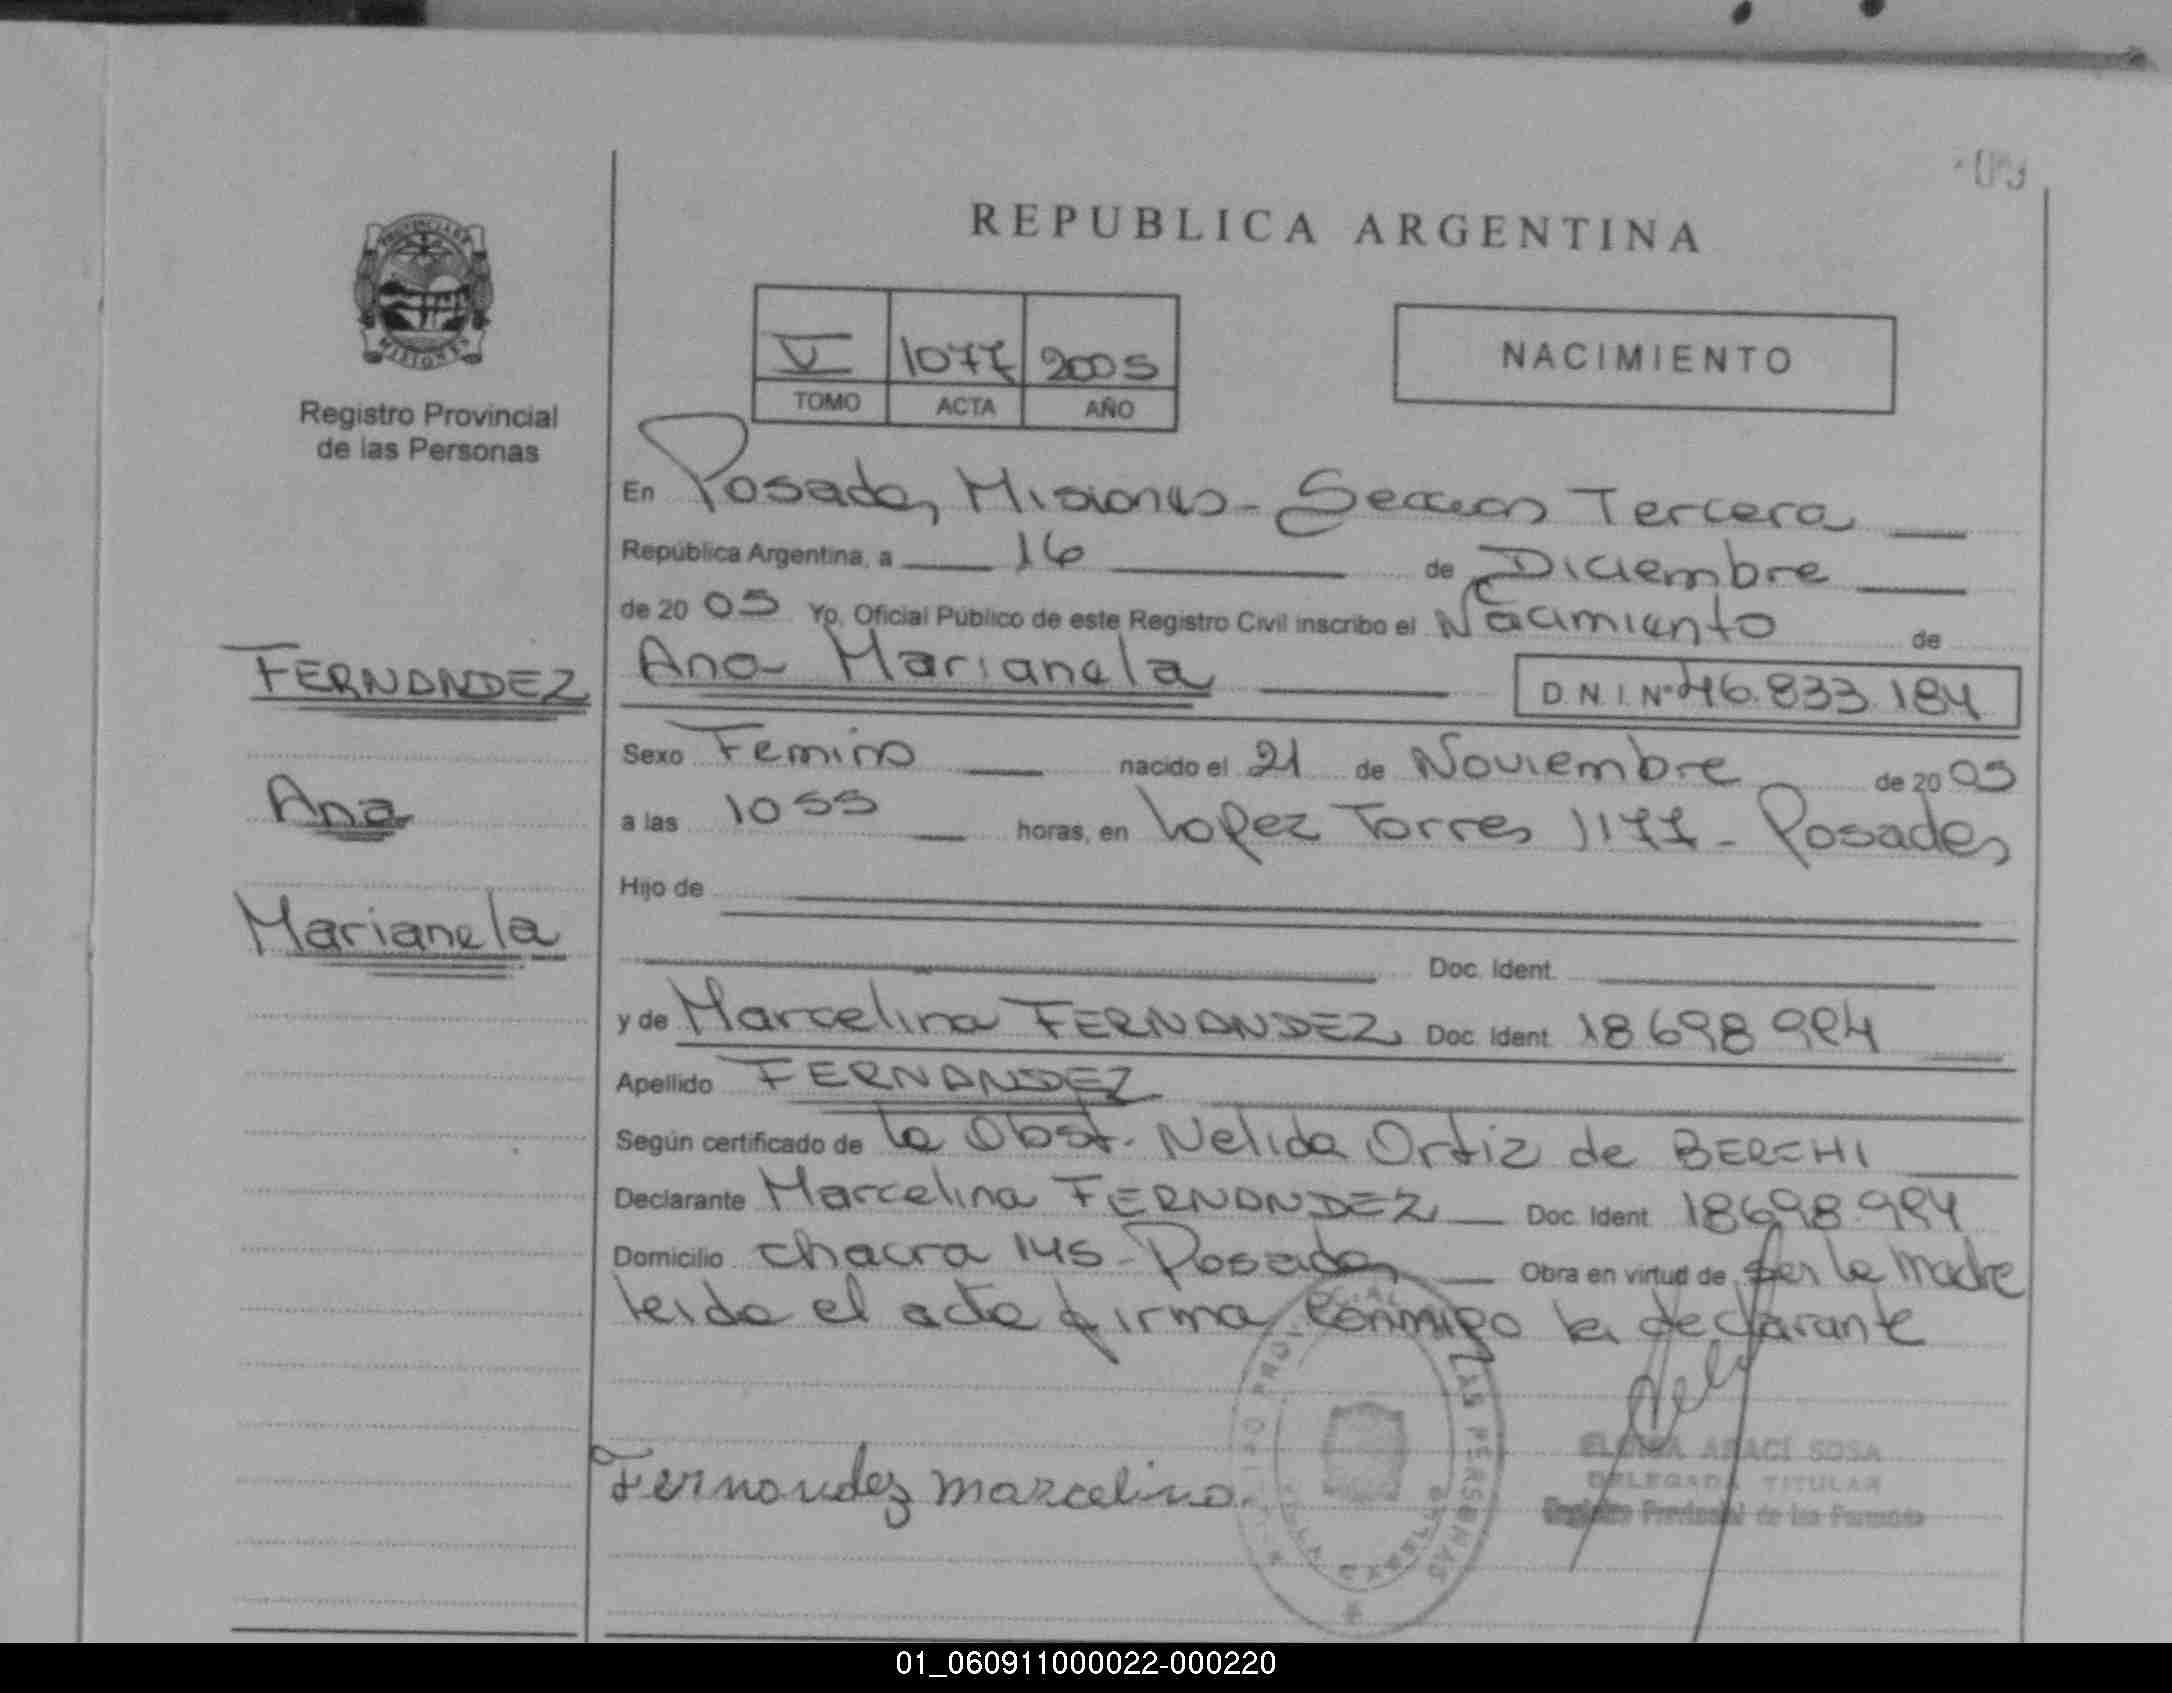 REPUBLICA ARGENTINA
PROVINCIA DE
MISIONES
Registro Provincial
de las Personas
V 1077 2005
TOMO ACTA AÑO
NACIMIENTO
En Posadas, Misiones - Seccion Tercera
República Argentina, a 16 de Diciembre
de 20 05 Yo, Oficial Público de este Registro Civil inscribo el Nacimiento de
FERNANDEZ
Ana Marianela D.N.I. Nº 46.833.184
Sexo Femino nacido el 21 de Noviembre de 20 05
Ana
a las 1055 horas, en Lopez Torres 1177 - Posadas
Hijo de
Marianela
Doc. Ident.
y de Marcelina FERNANDEZ Doc. Ident. 18698994
Apellido FERNANDEZ
Según certificado de la Obst. Nelida Ortiz de BERCHI
Declarante Marcelina FERNANDEZ Doc. Ident. 18698.994
Domicilio chacra 145 - Posadas Obra en virtud de ser la madre
leida el acta firma conmigo la declarante
LAS PERSONAS
Fernandez marcelina.
ARACI SOSA
DELEGADA TITULAR
Registro Provincial de las Personas
01_060911000022-000220